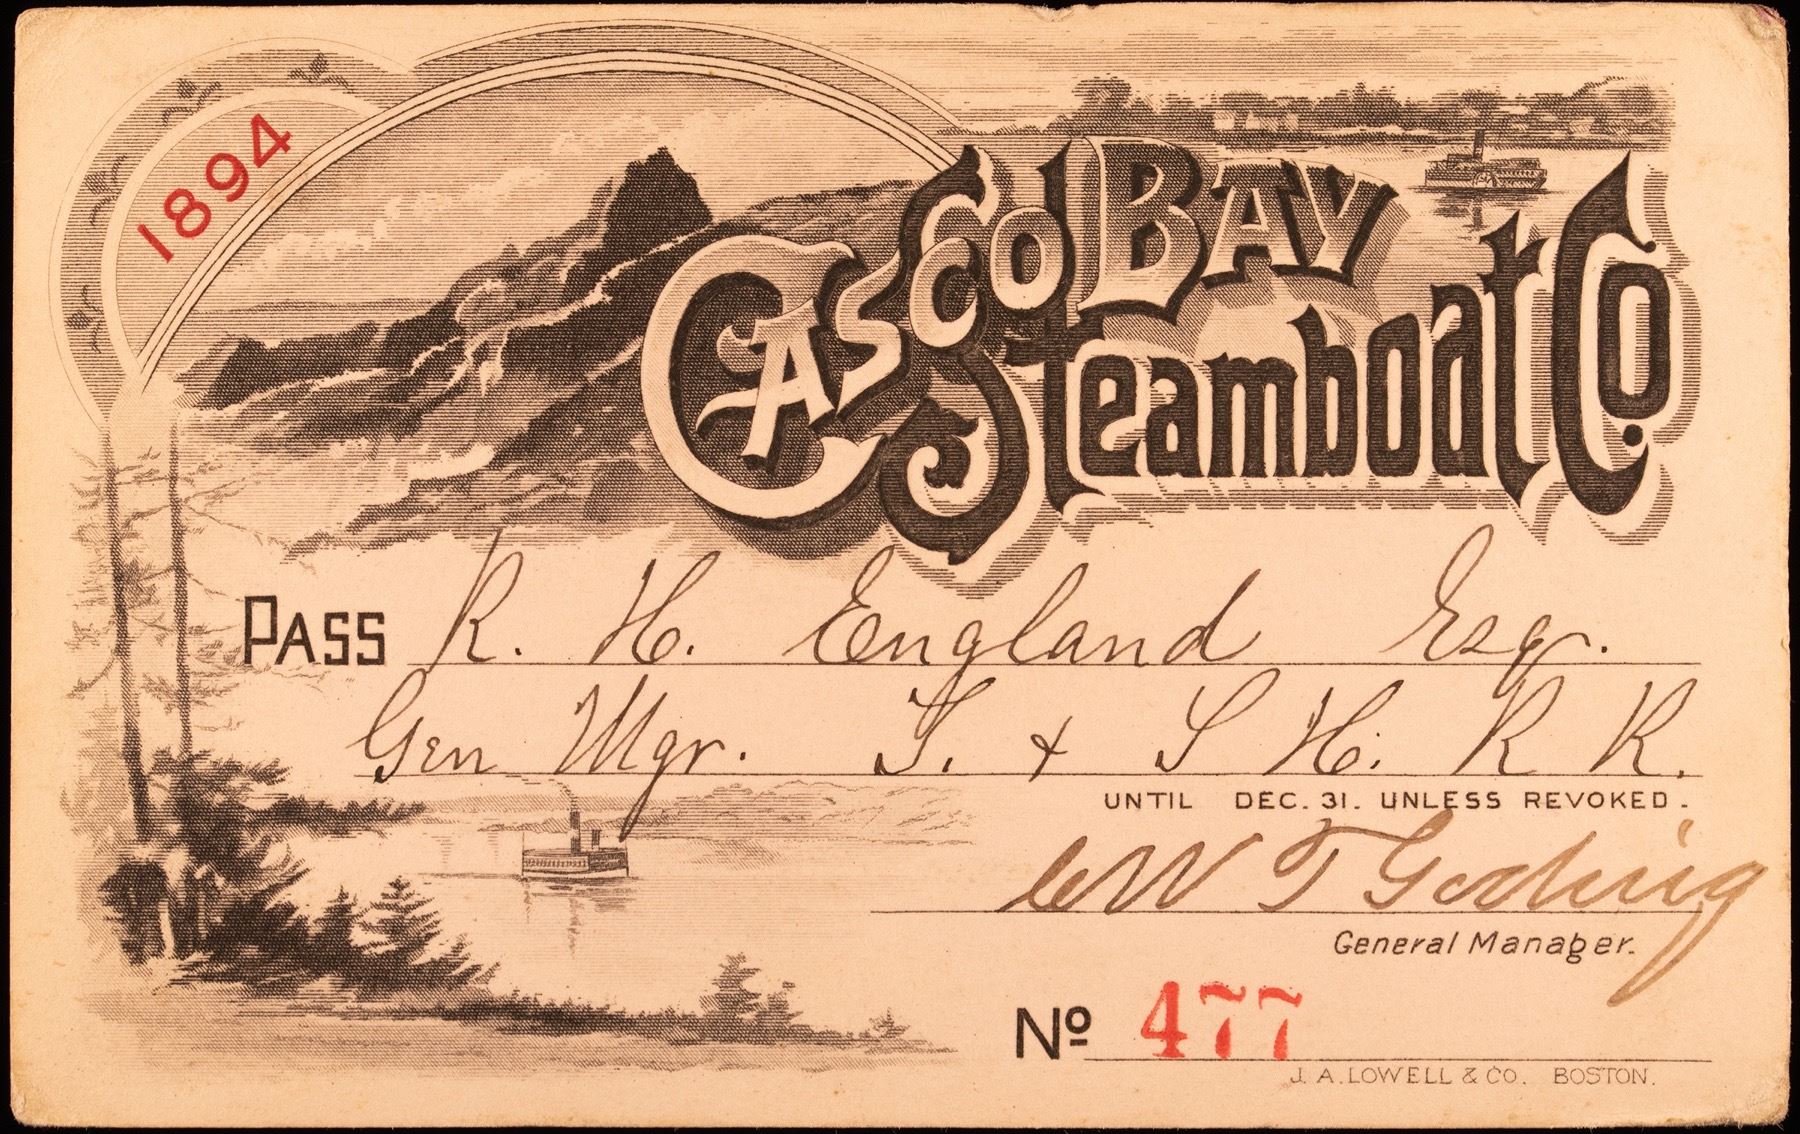 1894
CASCO BAY
Steamboat Co.
PASS R. H. England Esqr.
Gen Mgr. T. & S H. R R.
UNTIL DEC. 31. UNLESS REVOKED.
C W T Goding
General Manager.
No 477
J. A. LOWELL & CO. BOSTON.